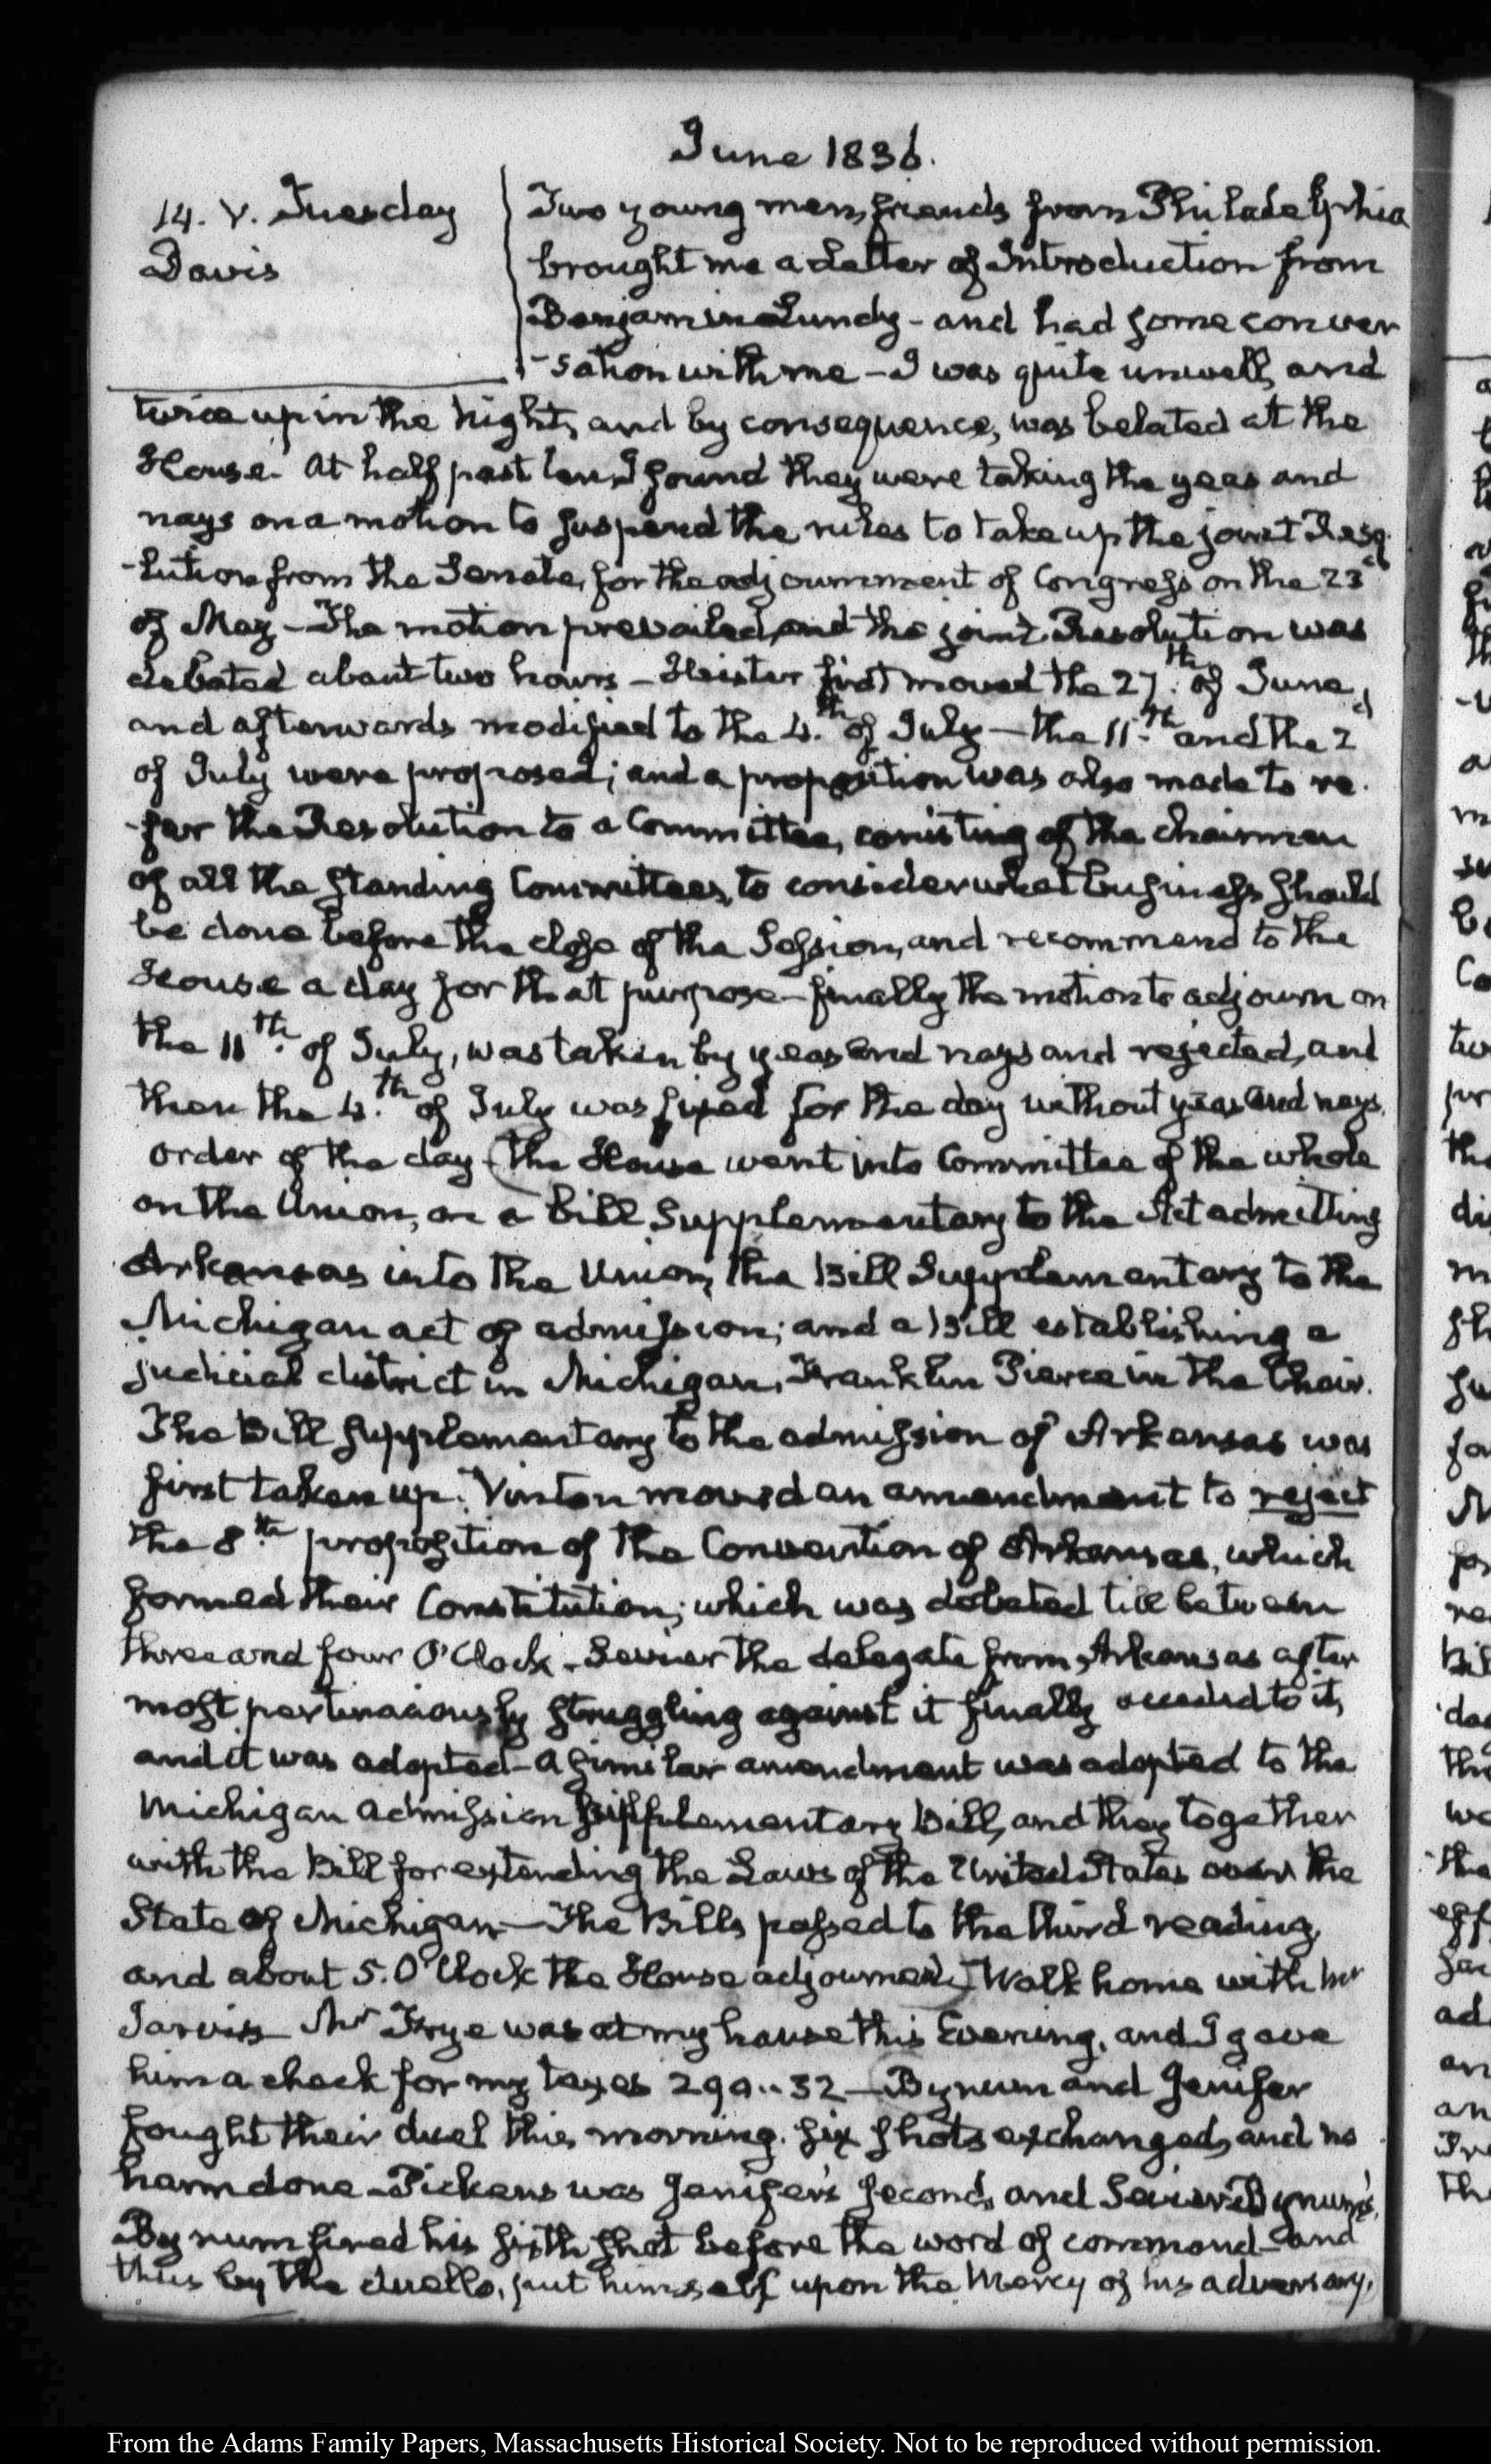 June 1836.
14. V. Tuesday
Davis
Two young men, friends from Philadelphia
brought me a Letter of Introduction from
Benjamin Lundy - and had some conver
-sation with me - I was quite unwell, and
twice up in the Night, and by consequence, was belated at the
House. At half past ten, I found they were taking the yeas and
nays on a motion to suspend the rules to take up the joint Reso
-lution from the Senate, for the adjournment of Congress on the 23d
of May - The motion prevailed, and the joint Resolution was
debated about two hours - Heister first moved the 27th. of June,
and afterwards modified to the 4.th of July - the 11.th and the 2d
of July were proposed; and a proposition was also made to re.
-fer the Resolution to a Committee, consisting of the chairmen
of all the standing Committees, to consider what business should
be done before the close of the Session, and recommend to the
House a day for that purpose - finally the motion to adjourn on
the 11th. of July, was taken by yeas and nays and rejected, and
then the 4.th of July was fixed for the day without yeas and nays.
order of the day (The House went into Committee of the whole
on the Union, on a Bill Supplementary to the Act admitting
Arkansas into the Union, the Bill Supplementary to the
Michigan act of admission; and a Bill establishing a
judicial district in Michigan, Franklin Pierce in the Chair.
The Bill supplementary to the admission of Arkansas was
first taken up. Vinton moved an amendment to reject
the 8th proposition of the Convention of Arkansas, which
formed their Constitution; which was debated till between
three and four O'Clock - Sevier the delegate from Arkansas after
most pertinaciously struggling against it finally acceded to it,
and it was adopted - A similar amendment was adopted to the
Michigan admission Supplementary Bill, and they together
with the Bill for extending the Laws of the United States over the
State of Michigan - The Bills passed to the third reading,
and about 5. O'Clock the House adjourned) Walk home with Mr
Jarvis - Mr Frye was at my house this Evening, and I gave
him a check for my taxes 299..32 - Bynum and Jenifer
fought their duel this morning. six shots exchanged, and no
harm done - Pickens was Jenifer's second, and Sevier Bynum's,
Bynum fired his sixth shot before the word of command - and
thus by the duello, put himself upon the Mercy of his adversary,
From the Adams Family Papers, Massachusetts Historical Society. Not to be reproduced without permission.